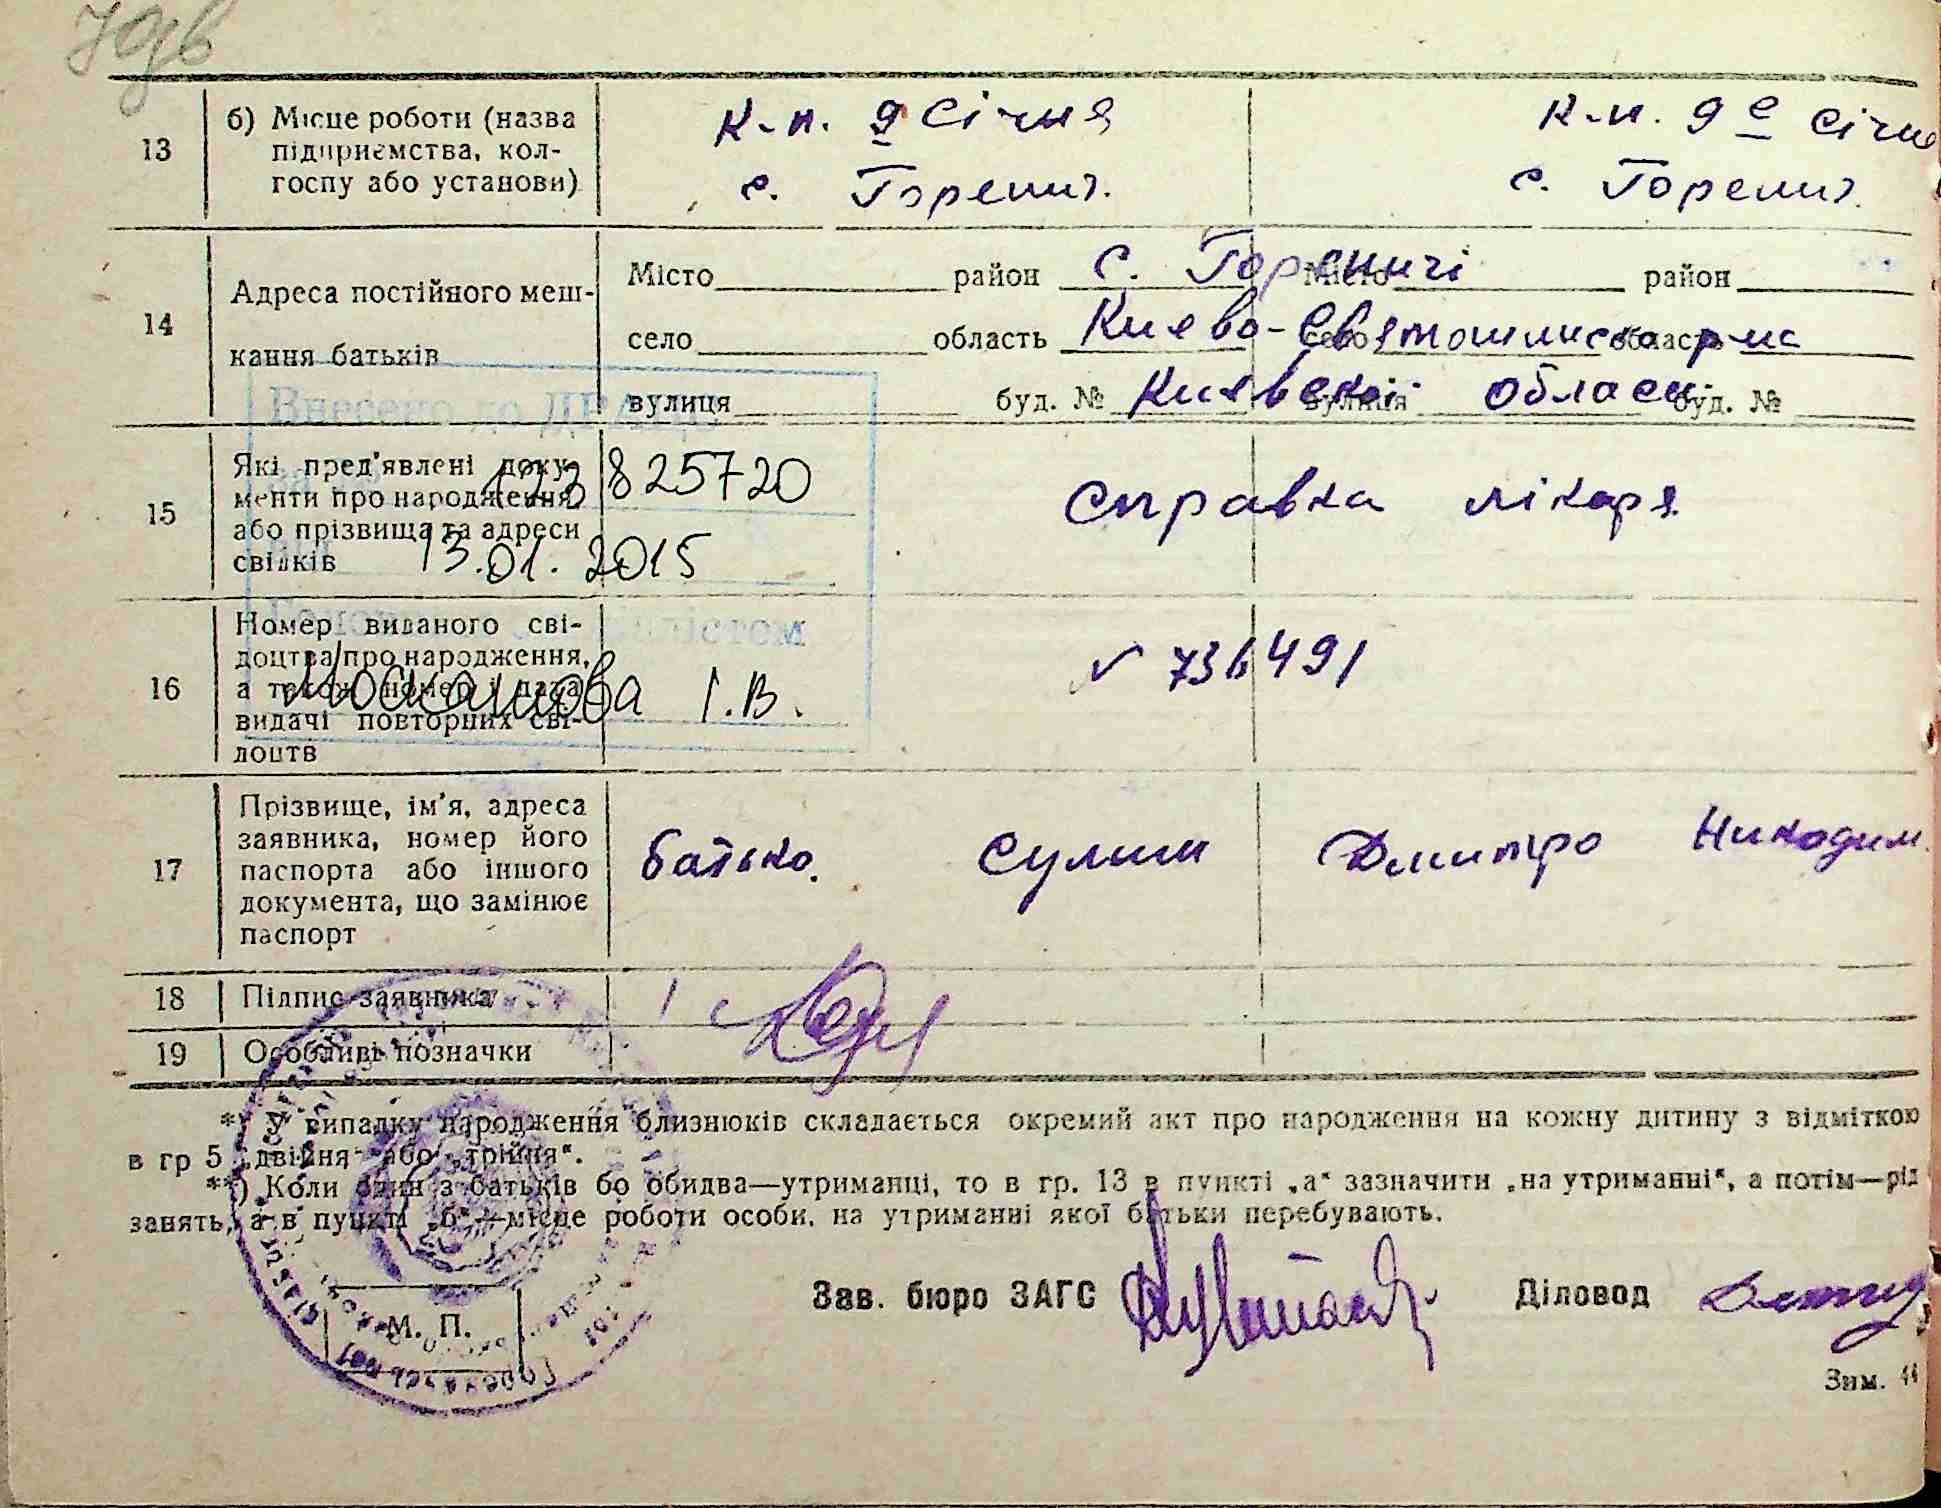 13
б) Місце роботи (назва
підприємства, кол-
госпу або установи)
к-п. 9 Січня
с. Горенич.
к-п. 9 е Січня
с. Горенич.
14
Адреса постійного меш-
кання батьків
Місто район
село область
вулиця буд. №
Місто район
село область
вулиця буд. №
с. Гореничі
Києво-Святошинского р-на
Київської області
15
Які пред'явлені доку-
менти про народження
або прізвища та адреси
свідків
справка лікаря
Внесено до ДРАЦС
123825720
13.01.2015
16
Номер виданого сві-
доцтва про народження,
а також номер і дата
видачі повторних сві-
доцтв
І.В.
№ 736491
17
Прізвище, ім'я, адреса
заявника, номер його
паспорта або іншого
документа, що замінює
паспорт
батько. Сулим Дмитро Никодим.
18 Підпис заявника
19 Особливі позначки
*) У випадку народження близнюків складається окремий акт про народження на кожну дитину з відміткою
в гр 5 „двійня“ або „трійня“.
**) Коли один з батьків бо обидва—утриманці, то в гр. 13 в пункті „а“ зазначити „на утриманні“, а потім—рід
занять, а в пункті „б“—місце роботи особи, на утриманні якої батьки перебувають.
Зав. бюро ЗАГС Діловод
М. П.
Зим. 44